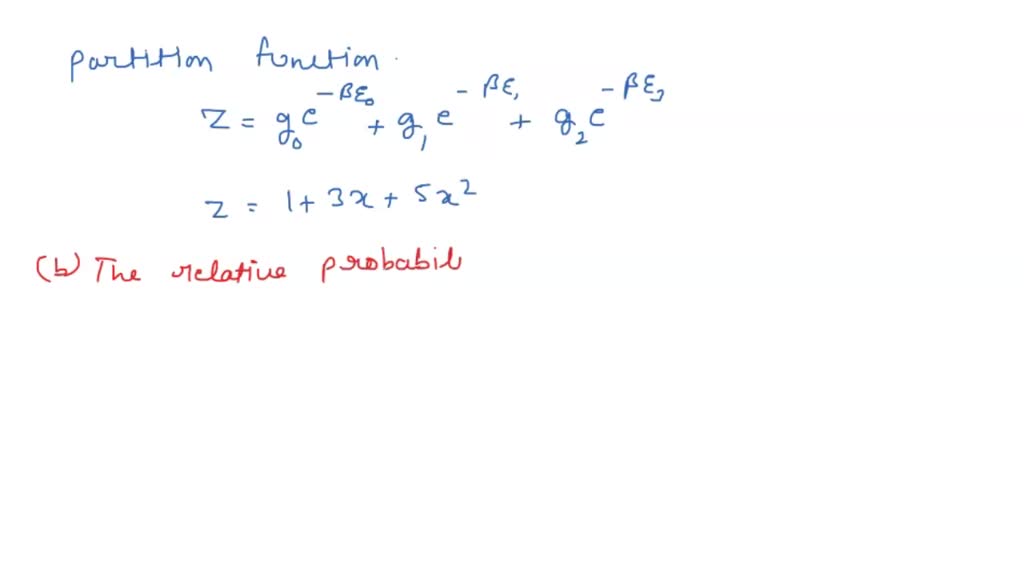 partition function.
Z = g₀e^{-βε₀} + g₁e^{-βε₁} + g₂e^{-βε₂}
Z = 1 + 3x + 5x²
(b) The relative probabil